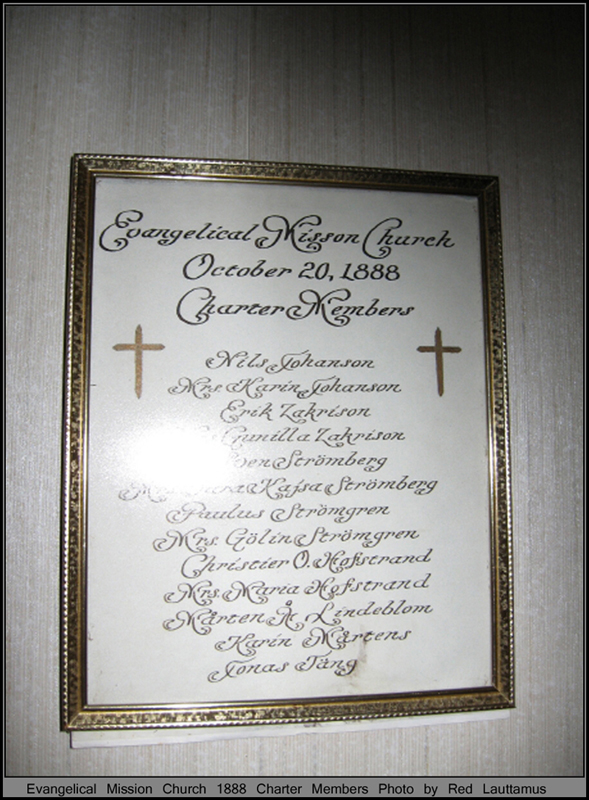 Evangelical Misson Church
October 20, 1888
Charter Members
Nils Johanson
Mrs. Karin Johanson
Erik Zakrison
Gunilla Zakrison
Strömberg
Kajsa Strömberg
Paulus Strömgren
Mrs. Gölin Strömgren
Christier O. Hofstrand
Mrs. Maria Hofstrand
Mårten Å. Lindeblom
Karin Mårtens
Jonas Täng
Evangelical Mission Church 1888 Charter Members Photo by Red Lauttamus